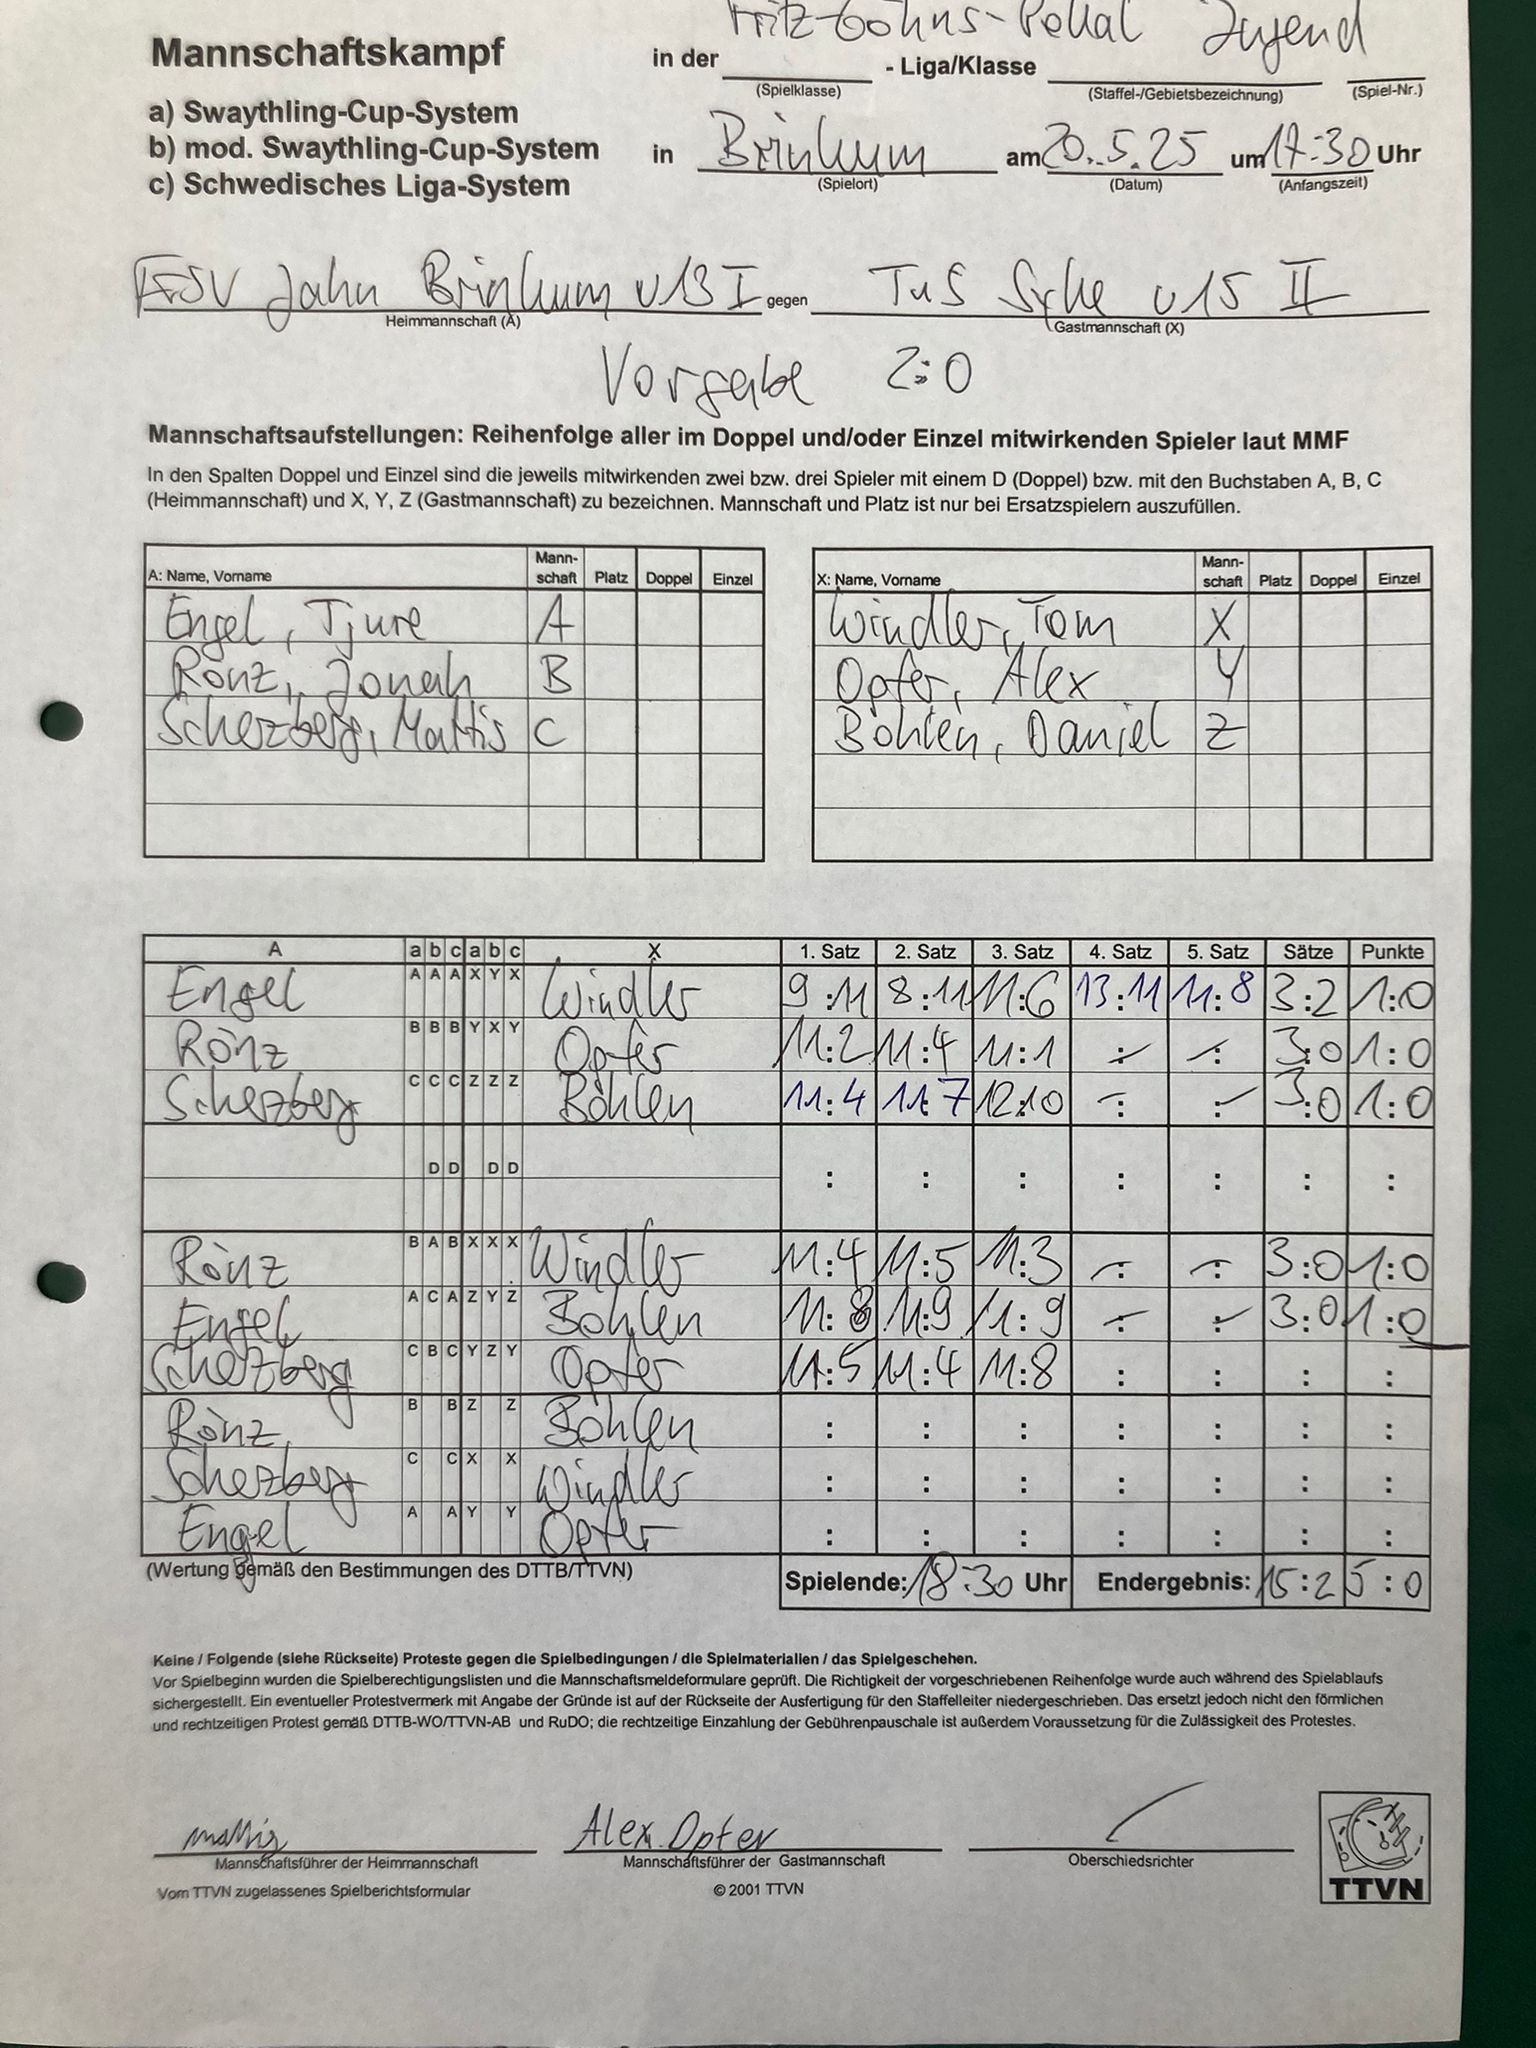 Fritz-Göhns-Pokal Jugend
Mannschaftskampf in der - Liga/Klasse
(Spielklasse) (Staffel-/Gebietsbezeichnung) (Spiel-Nr.)
a) Swaythling-Cup-System
b) mod. Swaythling-Cup-System in Brinkum am 20.5.25 um 17:30 Uhr
(Spielort) (Datum) (Anfangszeit)
c) Schwedisches Liga-System
FSV Jahn Brinkum U13 I gegen TuS Syke U15 II
Heimmannschaft (A) Gastmannschaft (X)
Vorgabe 2:0
Mannschaftsaufstellungen: Reihenfolge aller im Doppel und/oder Einzel mitwirkenden Spieler laut MMF
In den Spalten Doppel und Einzel sind die jeweils mitwirkenden zwei bzw. drei Spieler mit einem D (Doppel) bzw. mit den Buchstaben A, B, C
(Heimmannschaft) und X, Y, Z (Gastmannschaft) zu bezeichnen. Mannschaft und Platz ist nur bei Ersatzspielern auszufüllen.
A: Name, Vorname Mann-schaft Platz Doppel Einzel X: Name, Vorname Mann-schaft Platz Doppel Einzel
Engel, Tjure A Windler, Tom X
Rönz, Jonah B Opfer, Alex Y
Scherzberg, Mattis C Böhlen, Daniel Z
A a b c a b c X 1. Satz 2. Satz 3. Satz 4. Satz 5. Satz Sätze Punkte
Engel A A A X Y X Windler 9:11 8:11 11:6 13:11 11:8 3:2 1:0
Rönz B B B Y X Y Opfer 11:2 11:4 11:1 : : 3:0 1:0
Scherzberg C C C Z Z Z Böhlen 11:4 11:7 12:10 : : 3:0 1:0
D D D D : : : : : : :
Rönz B A B X X X Windler 11:4 11:5 11:3 : : 3:0 1:0
Engel A C A Z Y Z Böhlen 11:8 11:9 11:9 : : 3:0 1:0
Scherzberg C B C Y Z Y Opfer 11:5 11:4 11:8 : : : :
Rönz B B Z Z Böhlen : : : : : : :
Scherzberg C C X X Windler : : : : : : :
Engel A A Y Y Opfer : : : : : : :
(Wertung gemäß den Bestimmungen des DTTB/TTVN) Spielende: 18:30 Uhr Endergebnis: 15:2 5:0
Keine / Folgende (siehe Rückseite) Proteste gegen die Spielbedingungen / die Spielmaterialien / das Spielgeschehen.
Vor Spielbeginn wurden die Spielberechtigungslisten und die Mannschaftsmeldeformulare geprüft. Die Richtigkeit der vorgeschriebenen Reihenfolge wurde auch während des Spielablaufs
sichergestellt. Ein eventueller Protestvermerk mit Angabe der Gründe ist auf der Rückseite der Ausfertigung für den Staffelleiter niedergeschrieben. Das ersetzt jedoch nicht den förmlichen
und rechtzeitigen Protest gemäß DTTB-WO/TTVN-AB und RuDO; die rechtzeitige Einzahlung der Gebührenpauschale ist außerdem Voraussetzung für die Zulässigkeit des Protestes.
Mattis Alex Opfer
Mannschaftsführer der Heimmannschaft Mannschaftsführer der Gastmannschaft Oberschiedsrichter
Vom TTVN zugelassenes Spielberichtsformular © 2001 TTVN TTVN